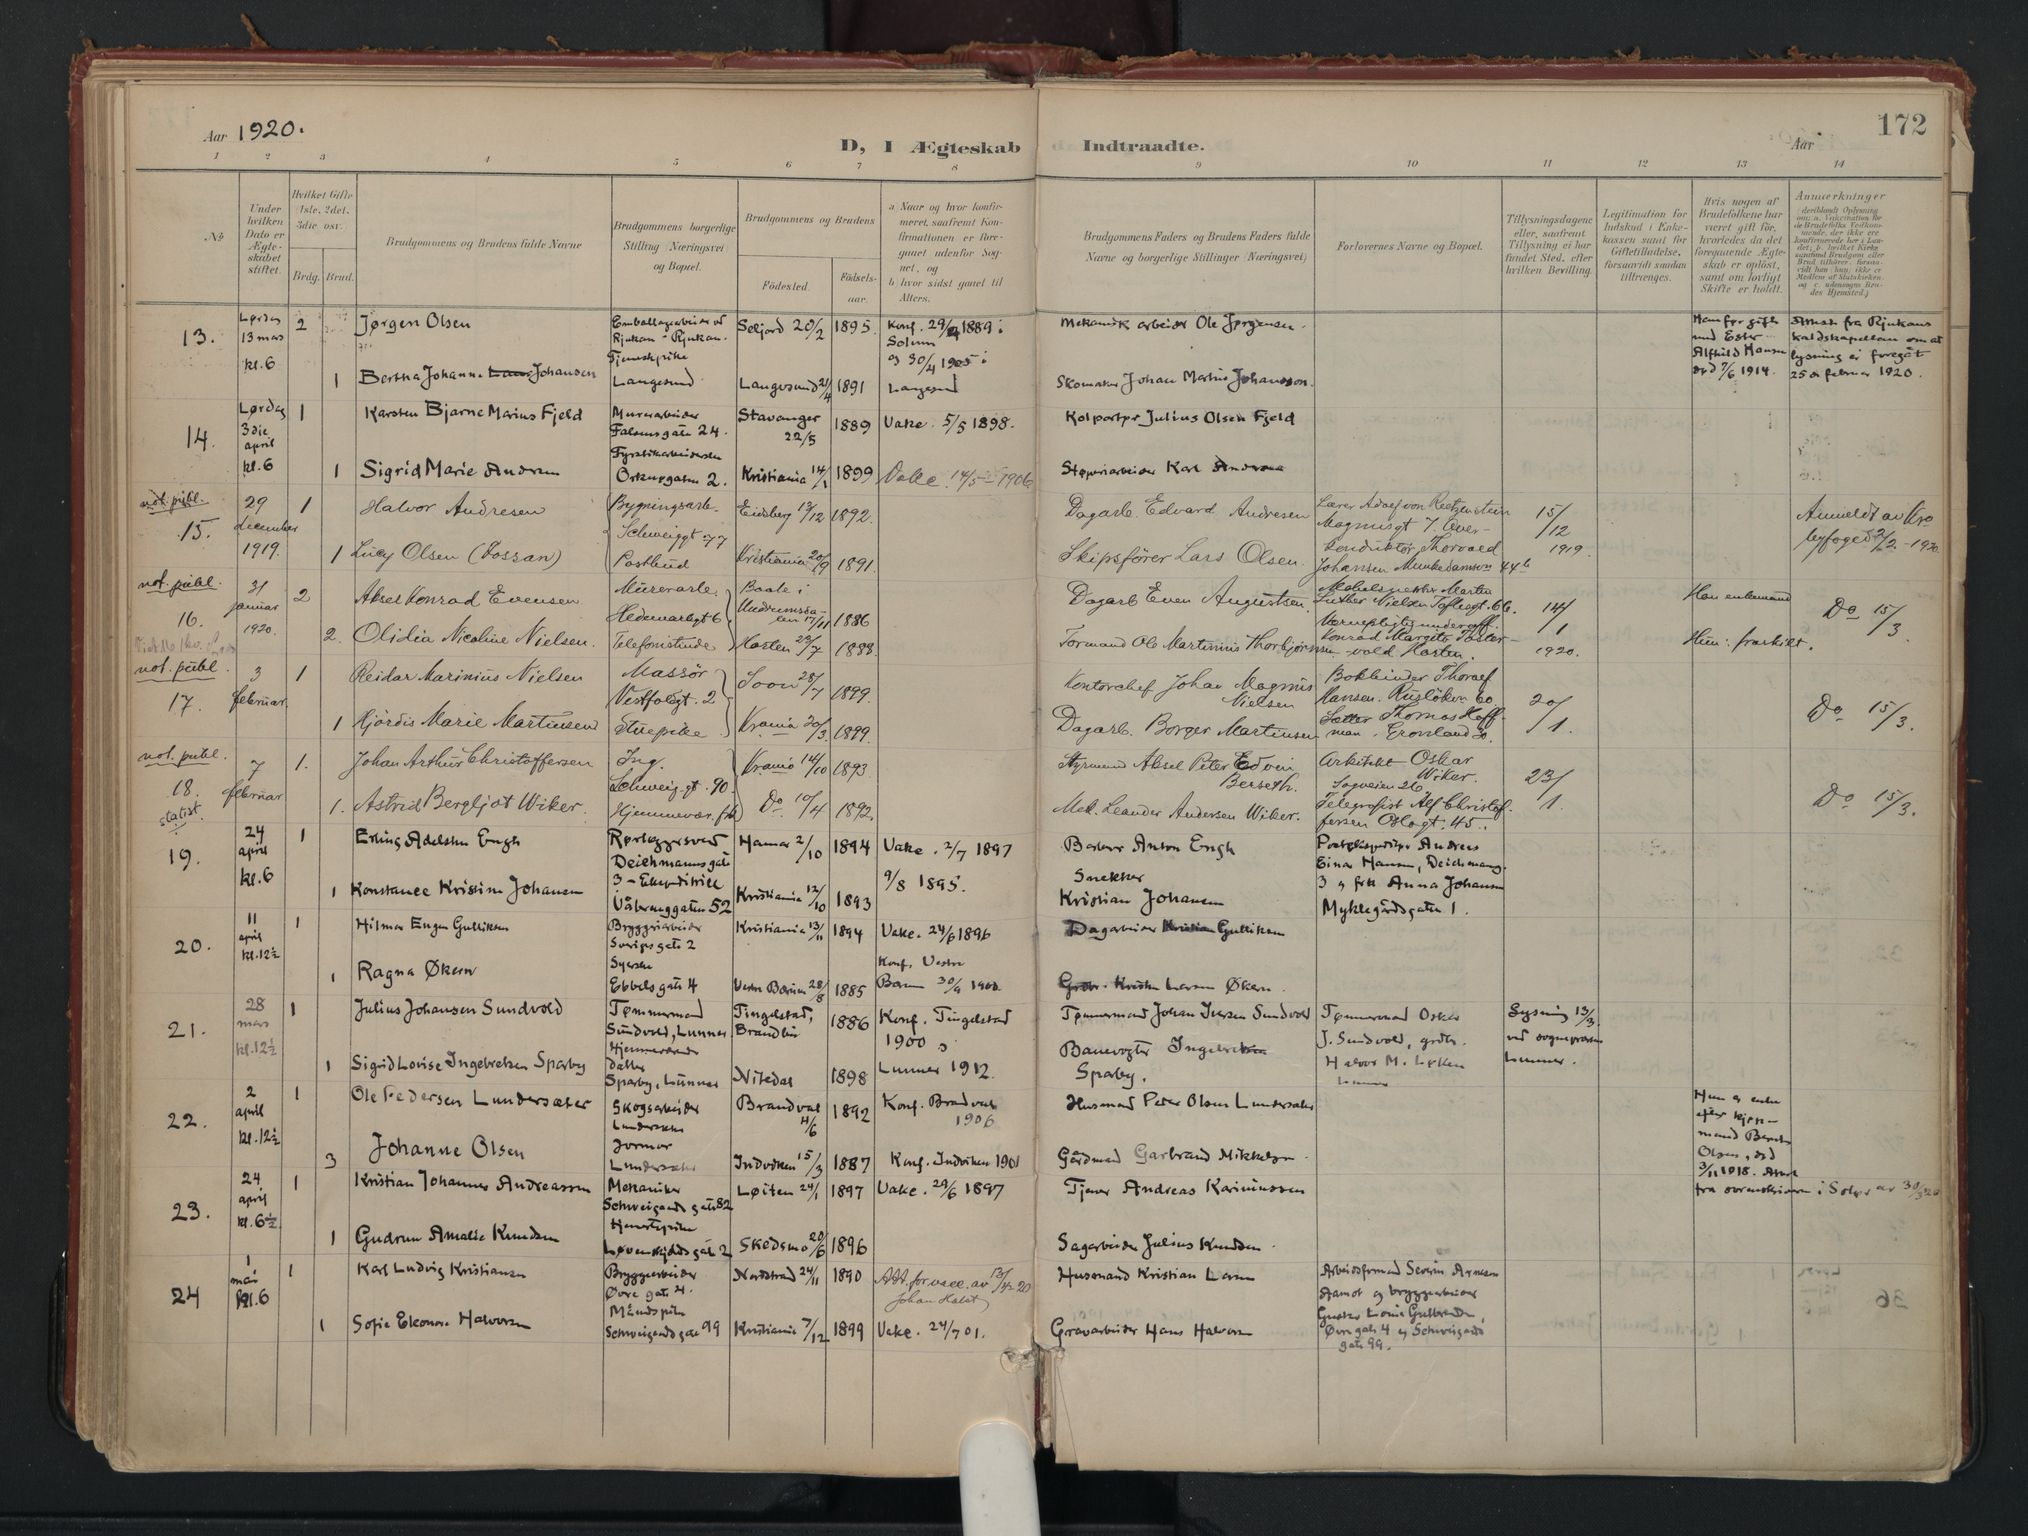 Aar 1920.
D, I Ægteskab Indtraadte.
172
Aar
1 2 3 4 5 6 7 8 9 10 11 12 13 14
No
Under hvilken Dato er Ægteskabet stiftet.
Hvilket Gifte 1ste, 2det, 3die osv.
Brdg. Brud.
Brudgommens og Brudens fulde Navne
Brudgommens borgerlige Stilling (Næringsvei) og Bopæl.
Brudgommens og Brudens
Födested.
Födsels-aar.
a Naar og hvor konfirmeret, saafremt Konfirmationen er foregaaet udenfor Sognet, og
b hvor sidst gaaet til Alters.
Brudgommens Faders og Brudens Faders fulde Navne og borgerlige Stillinger (Næringsvei)
Forlovernes Navne og Bopæl.
Tillysningsdagene eller, saafremt Tillysning ei har fundet Sted, efter hvilken Bevilling.
Legitimation for Indskud i Enkekassen samt for Giftetilladelse, forsaavidt saadan tiltrænges.
Hvis nogen af Brudefolkene har været gift för, hvorledes da det foregaaende Ægteskab er oplöst, samt om lovligt Skifte er holdt.
Anmærkninger
13. Lørdag 13 mars kl. 6
2 Jørgen Olsen
Seljord 20/2 1895
Konf. 29/9 1889 i Solum og 30/4 1905 i Langesund
Mekanisk arbeider Ole Jørgensen.
Han før gift med Ester Alfhild Hansen død 7/6 1914.
Attest fra Rjukans kaldskapellan om at lysning er foregåt 25de februar 1920.
1 Bertha Johanne Johansen
Tjenestpike Langesund
Langesund 21/4 1891
Skomaker Johan Martin Johansson.
14. Lørdag 3die april kl. 6
1 Karsten Bjarne Marius Fjeld
Murerarbeider Falsensgate 24.
Stavanger 22/5 1889
Vake. 5/5 1898.
Kolportør Julius Olsen Fjeld
1 Sigrid Marie Andresen
2.
Kristiania 14/1 1899
Vake. 14/5 1906
Støperiarbeider Karl Andresen
not. publ.
15. 29 december 1919.
1 Halvor Andresen
Bygningsarb. Schweiggt 77
Eidsberg 13/12 1892.
Dagarb. Edvard Andresen
15/12 1919
Anmeldt av Kra byfoged 2/2 - 1920
1 Lucy Olsen (Fossan)
Postbud
Kristiania 20/9 1891.
Skipsfører Lars Olsen.
Konduktør Thorvald Johansen Munkedamsvn 44b
not. publ.
16. 31 januar 1920.
2 Aksel Konrad Evensen
Murerarb. Hedemarksgt 6
17/11 1886
Dagarb Even Augustsen.
14/1 1920.
Han enkemand
Do 15/3.
2. Olidia Nicoline Nielsen.
Telefonistinde
Horten 23/7 1888
Formand Ole Martinius Thorbjørnsen
Hun: fraskilt.
not. publ.
17. 3 februar.
1 Reidar Marinius Nielsen
Massør Vestfoldgt. 2
Soon 28/7 1899.
Kontorchef Johan Magnus Nielsen
Bokbinder Thoralf Hansen. Ruseløkvn 60
20/1.
Do 15/3.
1 Hjørdis Marie Martinsen
Stuepike
Krania 20/3. 1899.
Dagarb. Borger Martinsen
Thomas Hoffman, Grønland 30.
not. publ.
18. 7 februar
statist.
1. Johan Arthur Christoffersen
Ing. Schweig.gt. 90.
Krania 14/10 1893
Styrmand Aksel Peter Edvin Berseth.
Arkitekt Oskar Wiker. Sogveien 26
23/1.
Do 15/3.
1. Astrid Bergljot Wiker.
Hjemmevær.
Do 10/4 1892.
Mek. Leander Andersen Wiker.
Telegrafist Alf Christoffersen Oslogt. 45.
19. 24 april kl. 6
1 Erling Adelsten Engh
Rørlæggersvend Deichmannsgate 3
Hamar 2/10 1894
Vake. 2/7 1897
Barberer Anton Engh
Postekspeditør Andreas Einar Hansen, Deichmansg. 3 og frk Anna Johansen Myklegårdsgaten 1.
1 Konstance Kristine Johansen
Ekspeditrice Vålerenggaten 52
Kristiania 12/10 1893
9/8 1895.
Snekker Kristian Johansen
20. 11 april kl. 12½
1 Hilmar Engen Gulliksen
Bryggeriarbeider Sverigesgate 2
Kristiania 13/11 1894
Vake. 24/6 1896
Dagarbeider Kristian Gulliksen
1 Ragna Økern
Syerske Ebbelsgate 4
Vestre Bærum 28/8 1885
Konf. Vestre Bærum 30/9 1900
Larsen Økern.
21. 28 mars kl. 12½
1 Julius Johansen Sundvold
Tømmermand Sundvold, Lunner
Tingelstad, Brandbu 1886
Konf. Tingelstad 1900 og
Tømmermand Johan Iversen Sundvold
Tømmermand Oskar J. Sundvold, grdbr. Halvor M. Løken Lunner
Lysning 13/3. ved sogneprsten Lunner.
1 Sigrid Lovise Ingebretsen Sparby
Hjemmeværende datter Sparby, Lunner
Nitedal 1898
Lunner 1912.
Banevogter Ingebretsen Sparby.
22. 2 april kl. 12½
1 Ole Pedersen Lundersæter
Skogsarbeider Lundersæter
Brandval 4/6 1892
Konf. Brandval 1906
Husmand Peter Olsen Lundersæter
Hun er enke efter kjørmand Bernt Olsen, død 3/11 1918. Attest fra sorenskriveren i Solør av 30/3 20
3 Johanne Olsen
Jormor Lundersæter
Indviken 15/3 1887
Konf. Indviken 1901
Gårdmand Garbrand Mikkelsen.
23. 24 april kl. 6½
1 Kristian Johannes Andreassen
Mekaniker Schweigaards gate 82
Løiten 24/1 1897
Vake. 29/6 1897
Tjener Andreas Kariniussen
1 Gudrun Amalie Knudsen
Løvenskjolds gate 2
Skedsmo 20/6 1896
Sagarbeider Julius Knudsen.
24 1 mai kl. 6
1 Karl Ludvig Kristiansen
Bryggearbeider Øvre gate 4.
Nordstrand 24/11 1890
Att. for vacc. av 13/4-20 Johan Holst
Husmand Kristian Larsen
Arbeidsformand Severin Arnesen Aamot og bryggearbeider Gustav Louis Gulbrandsen, Øvre gate 4 og Schweigaards gate 99.
1 Sofie Eleonore Halvorsen
Schweigaards gate 99
Kristiania 7/12 1899
Vake. 24/7 01.
Gravarbeider Hans Halvorsen